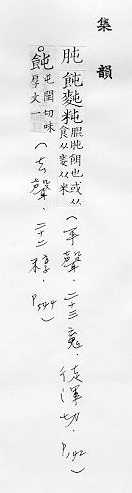 集韻
肫飩
也或从
食从麥从米
(平聲、二十三魂、徒渾切、P.142)
○飩
屯閏切味
厚文一
(去聲、二十二稕、P.544)